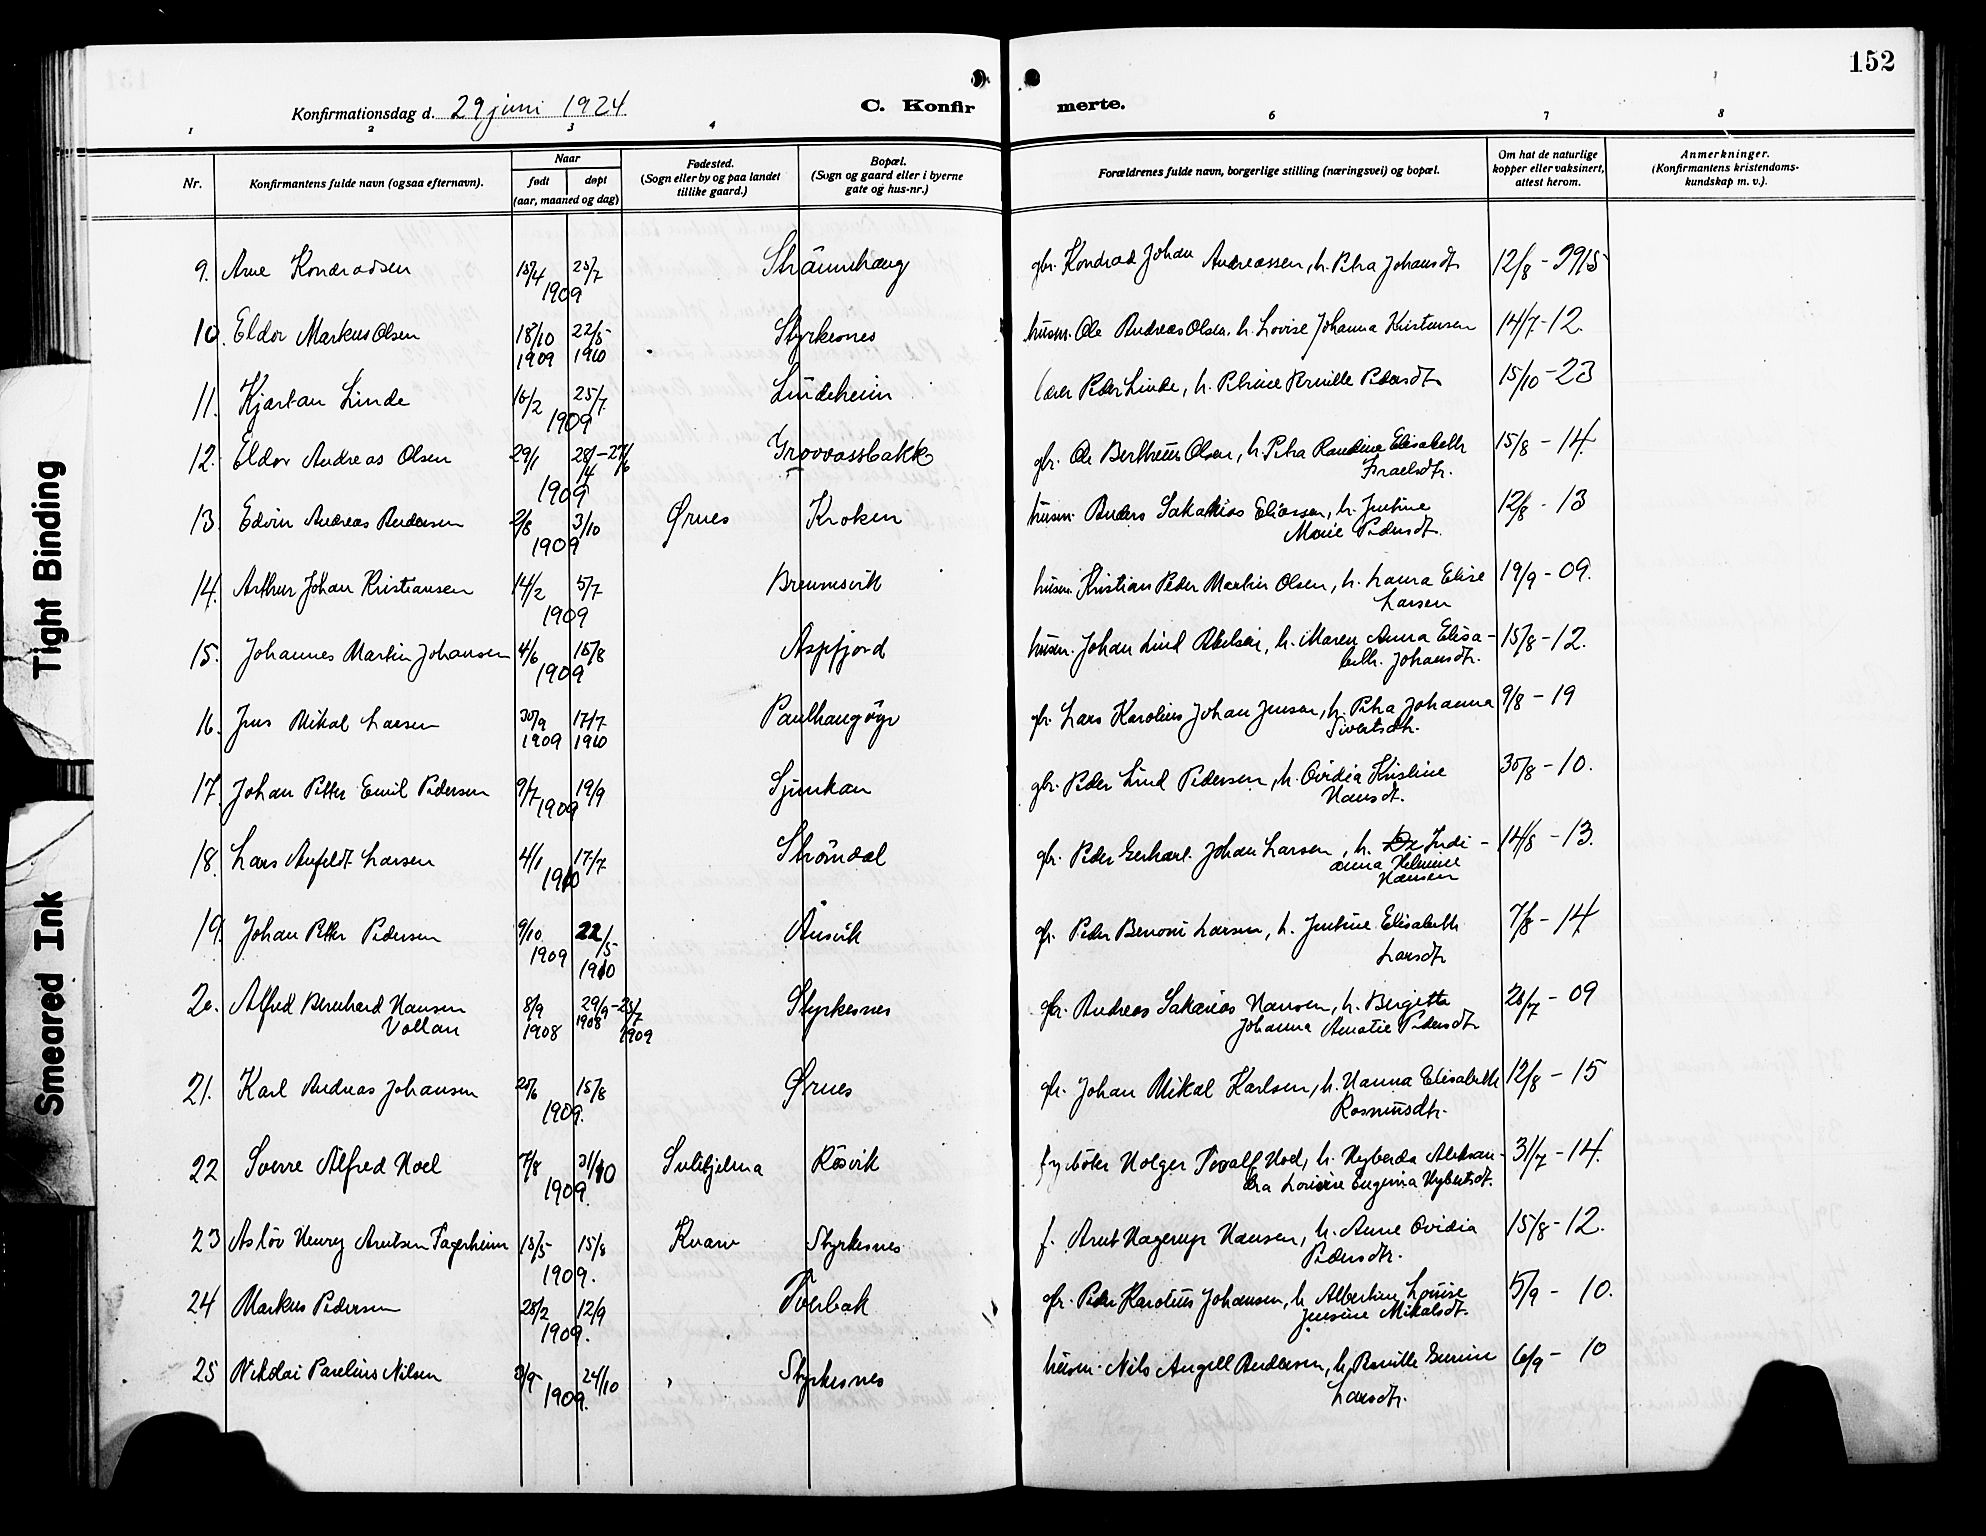 152
Konfirmationsdag d. 29 juni 1924
C. Konfirmerte.
1 2 3 4 6 7 8
Nr.
Konfirmantens fulde navn (ogsaa efternavn).
Naar
født døpt
(aar, maaned og dag)
Fødested.
(Sogn eller by og paa landet
tillike gaard.)
Bopæl.
(Sogn og gaard eller i byerne
gate og hus-nr.)
Forældrenes fulde navn, borgerlige stilling (næringsvei) og bopæl.
Om hat de naturlige
kopper eller vaksinert,
attest herom.
Anmerkninger.
(Konfirmantens kristendoms-
kundskap m. v.).
9. Arne Konradsen 15/4 25/7 gbr. Konrad Johan Andreassen, h. Petra Johansdtr 12/8
1909
10. Eldor Markus Olsen 18/10 22/5 Styrkesnes husm. Ole Andreas Olsen, h. Lovise Johanna Kristensen 14/7-12.
1909 1910
11. Kjartan Linde 16/2 25/7 Lindeheim lærer Peder Linde, h. Petrine Pernille Pedersdtr 15/10-23
1909
12. Eldor Andreas Olsen 29/1 Grovassbakk gbr. Ole Bertheus Olsen, h. Petra Elisabeth 15/8-14.
1909 Israelsdtr.
13. Edvin Andreas Andersen 2/8 3/10 Ørnes Kroken husm. Anders Sakarias Eliassen, h. Justine 12/8-13
1909 Marie Pedersdt.
14. Arthur Johan Kristiansen 14/2 5/7 Brennsvik husm. Kristian Peder Martin Olsen, h. Laura Elise 19/9-09.
1909 Larsen
15. Johannes Martin Johansen 4/6 15/8 Aspfjord husm. Johan Lind Abelsen, h. Maren Anna Elisa- 15/8-12.
1909 beth. Johansdtr.
16. Jens Mikal Larsen 30/9 17/7 Paulhaugøyr gbr. Lars Karolius Johan Jensen, h. Petra Johanna 9/8-19
1909 1910 Sivertsdtr.
17. Johan Petter Emil Pedersen 9/7 19/9 Sjunkan gbr. Peder Lind Pedersen, h. Ovidia Kristine 30/8-10.
1909 Hansdt.
18. Lars Anfeldt Larsen 4/1 17/7 Strömdal gbr. Peder Gerhart Johan Larsen, h. Indi- 14/8-13.
1910 anna Helmine
Hansen
19. Johan Petter Pedersen 9/10 22/5 Ånsvik gbr. Peder Benoni Larsen, h. Justine Elisabeth 7/8-14
1909 1910 Larsdtr
20. Alfred Bernhard Hansen 8/9 29/9-25/7 Styrkesnes gbr. Andreas Sakarias Hansen, h. Bergitte 28/7-09
Vollan 1908 1908 1909 Johanna Amalie Pedersdtr
21. Karl Andreas Johansen 20/6 15/8 Ørnes gbr. Johan Mikal Karlsen, h. Hanna Elisabeth 12/8-15
1909. Rasmusdtr.
22 Sverre Alfred Hoel 7/8 31/10 Sulitjelma Røsvik fyrbøter Holger Hoel, h. Aleksan- 31/7-14.
1909. dra Eugenia
23 Asløv Henry Arntsen Fagerheim 15/5 15/8 Kvarv Styrkesnes f. Arnt Hagerup Hansen, h. Anne Ovidia 15/8-12.
1909. Pedersdtr.
24 Markus Pedersen 28/2 12/9 Tverbak gbr. Peder Karolius Johansen, h. Albertine Louise 5/9-10.
1909. Jensine Mikalsdt.
25 Nikolai Parelius Nilsen 3/9 24/10 Styrkesnes husm. Nils Angell Andersen, h. Larsdtr. 6/9-10
1909.
Tight Binding
Smeared Ink